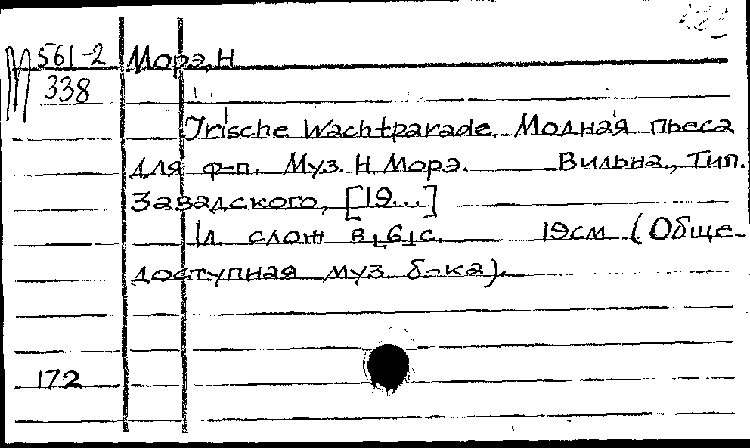 М 561-2
338
Морэ, Н
Irische Wachtparade. Модная пьеса
для ф-п. Муз. Н. Морэ. Вильна, Тип.
Завадского, [19...]
1 л. слож в 6 с. 19см (Обще-
доступная муз. б-ка).
172